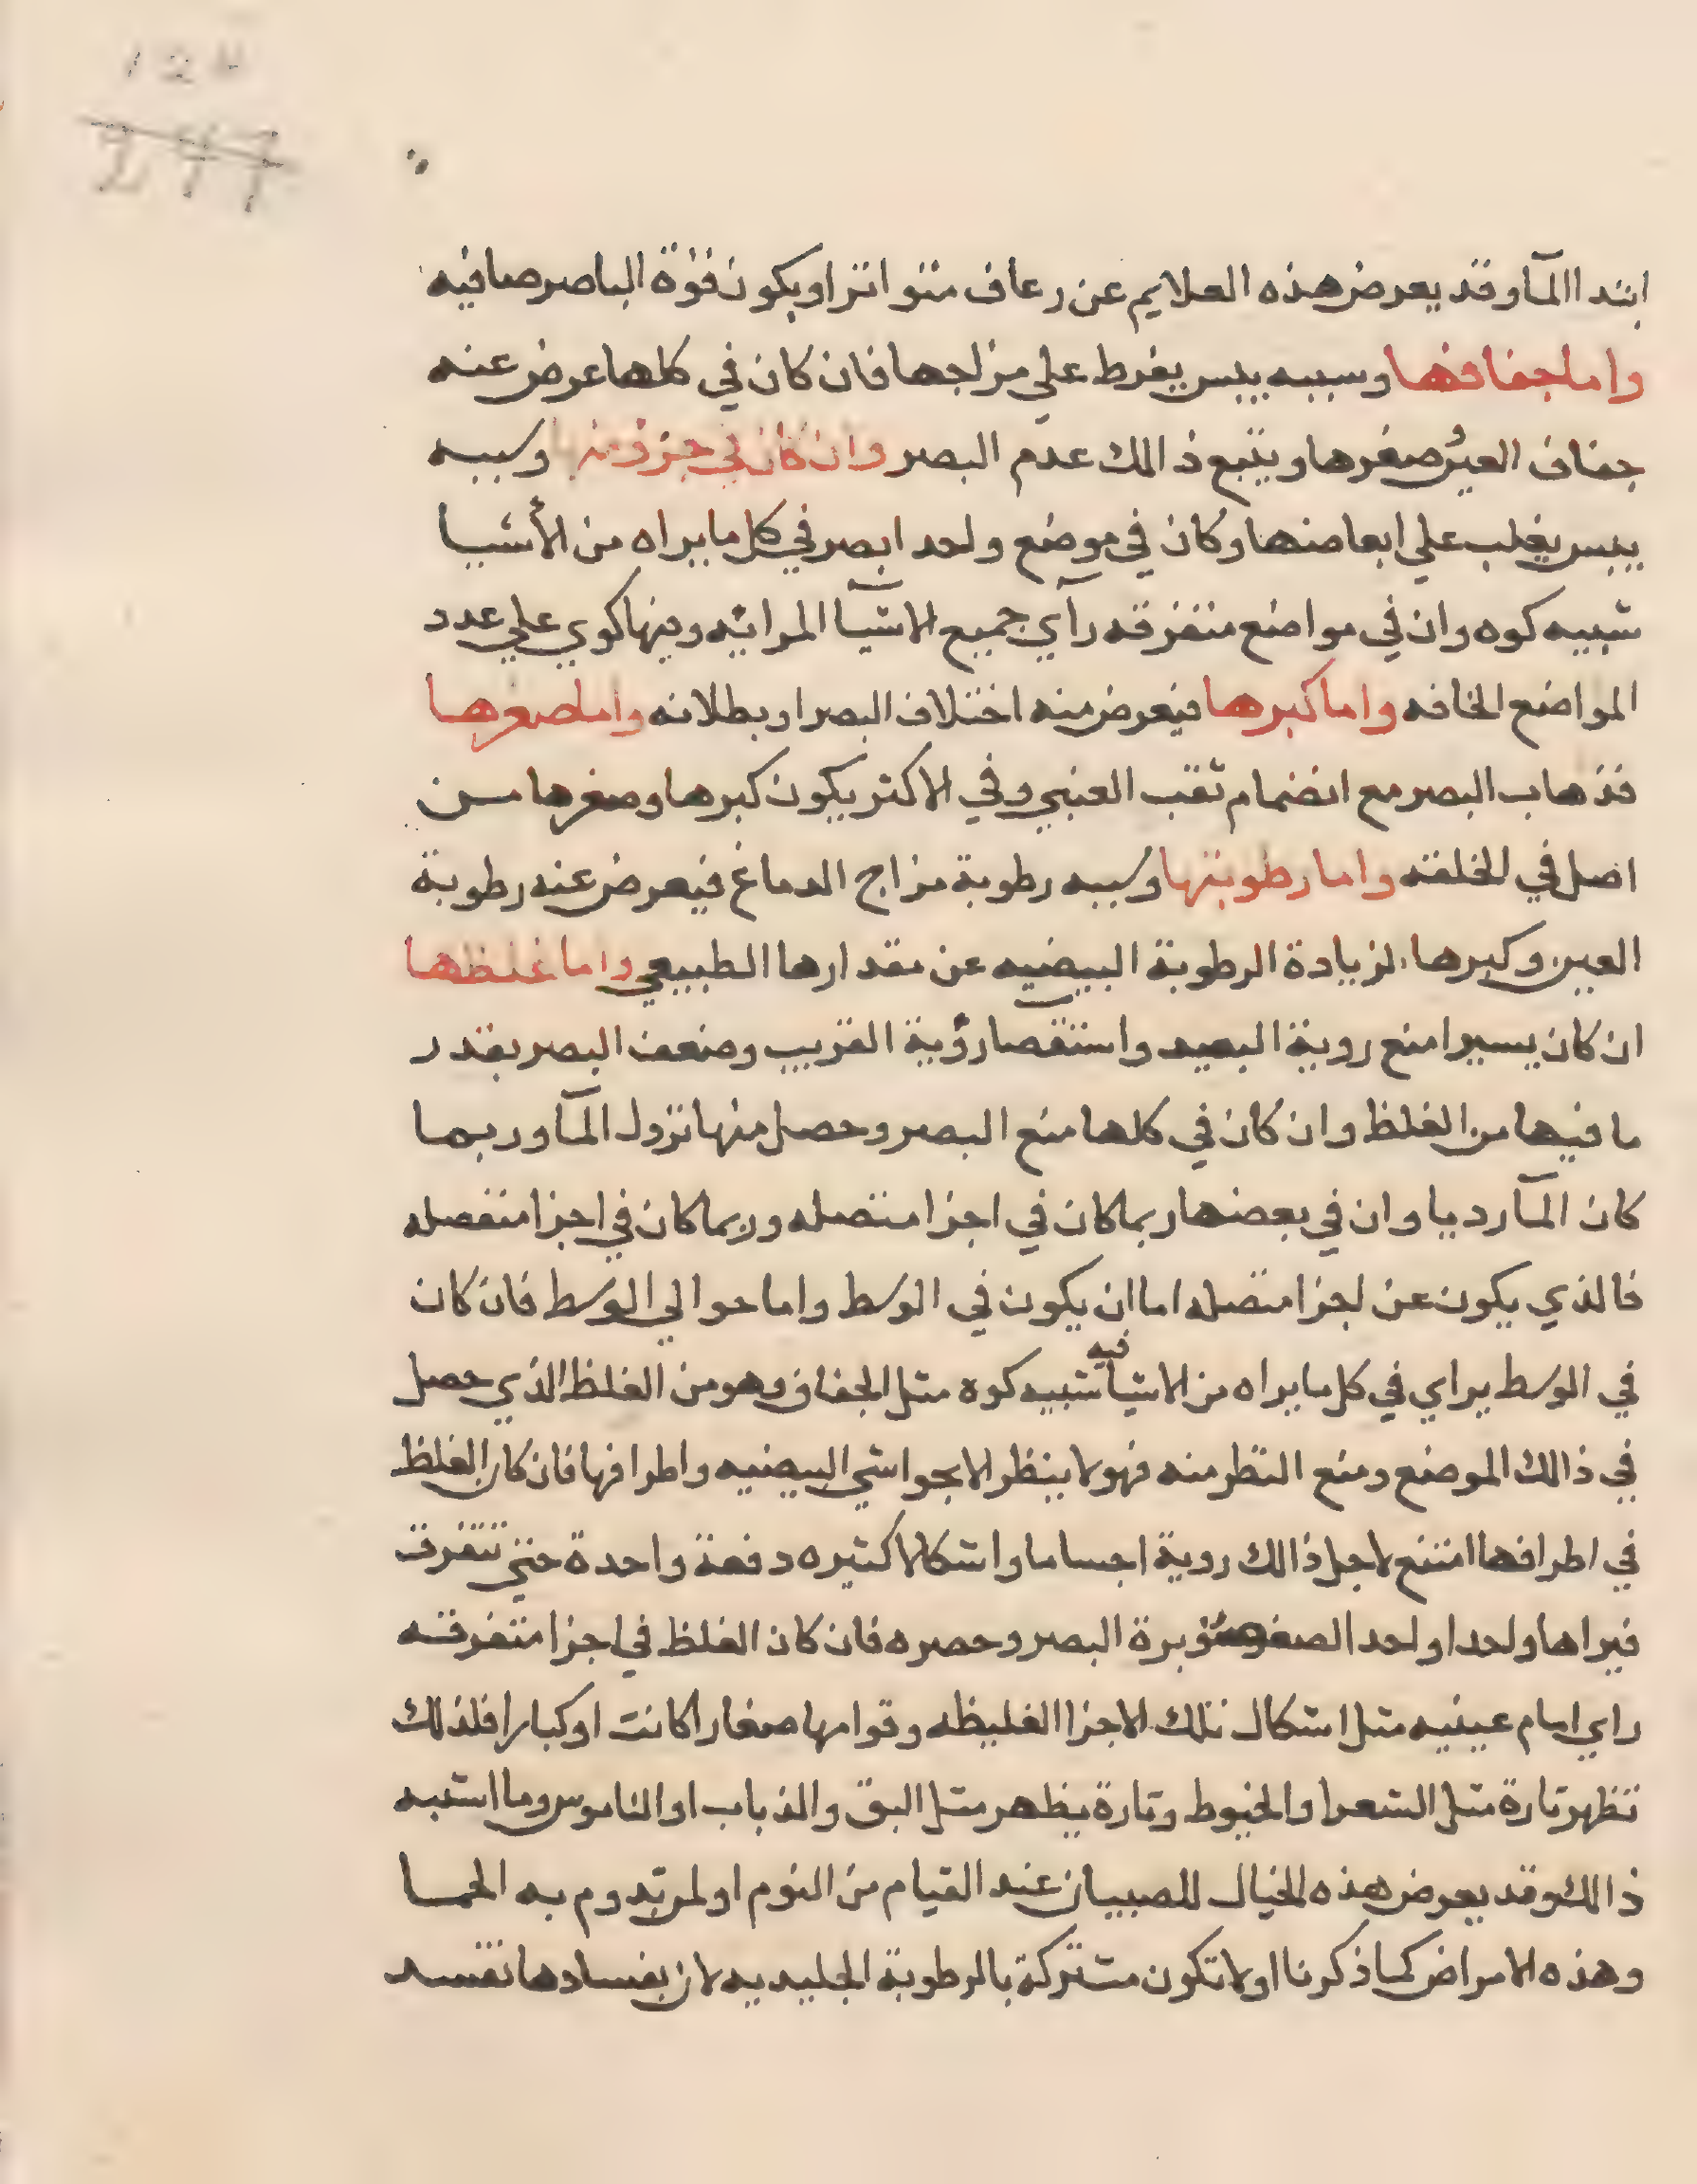 124
277
ابتدا المآ وقد يعرض هذه العلايم عن رعاف متواتر او يكون قوة الباصر صافيه
واما جفافها وسببه يبس يفرط علي مزاجها فان كان في كلها عرض عنه
جفاف العين وصغرها ويتبع ذالك عدم البصر وان كان في جزؤ منها وسببه
يبس يغلب علي ابعاضها وكان في موضع واحد ابصر في كل ما يراه من الأشيا
شبيه كوه وان في مواضع متفرقه رآي جميع الاشيآ المرائيه وفيها كوي علي عدد
المواضع الخافه واما كبرها فيعرض منه اختلاف البصر او بطلانه واما صغرها
فذهاب البصر مع انضمام ثقب العنبي وفي الاكثر يكون كبرها وصغرها من
اصل في الخلقه واما رطوبتها وسببه رطوبة مزاج الدماغ فيعرض عنه رطوبة
العين وكبرها لزيادة الرطوبة البيضيه عن مقدارها الطبيعي واما غلظها
ان كان يسيرا منع روية البعيد واستقصا رؤية القريب وضعف البصر بقدر
ما فيها من الغلظ وان كان في كلها منع البصر وحصل منها نزول المآ وربما
كان المآ رديا وان في بعضها ربما كان في اجزا متصله وربما كان في اجزا منفصله
فالذي يكون عن اجزا متصله اما ان يكون في الوسط واما حوالي الوسط فان كان
في الوسط يراي في كل ما يراه من الاشيا فيه شبيه كوه مثل الجفاف وهو من الغلظ الذي حصل
في ذالك الموضع ومنع النظر منه فهو لا ينظر الا بحواشي البيضيه واطرافها فان كان الغلظ
في اطرافها امتنع لاجل ذالك روية اجساما واشكالا كثيره دفعة واحدة حتي تتفرق
فيراها واحدا واحدا صنوبرة البصر وحصره فان كان الغلظ في اجزا متفرقه
راي امام عينيه مثل اشكال تلك الاجزا الغليظه وقوامها صغارا كانت او كبارا فلذلك
تظهر تارة مثل الشعر او الخيوط وتارة يظهر مثل البق والذباب او الناموس وما اشبه
ذالك وقد يعرض هذه الخيال للصبيان عند القيام من النوم او لمن تدوم به الحما
وهذه الامراض كما ذكرنا اولا تكون مشتركة بالرطوبة الجليديه لان بفسادها تفسد